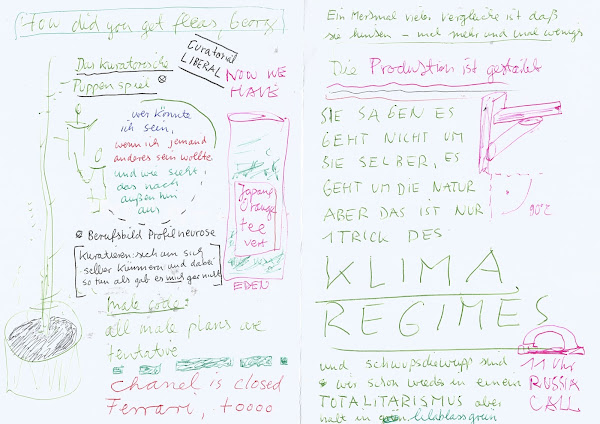 How did you get fleas, Georg
Das kuratorische
Puppenspiel
Curatorial
LIBERAL
NOW WE
HAVE
wer könnte
ich sein,
wenn ich jemand
anderes sein wollte
und wie sieht
das nach
außen hin
aus
Japang
Orange
tee
vert
EDEN
Berufsbild Profilneurose
kuratieren: sich um sich
selber kümmern und dabei
so tun als gäb es mich gar nicht
male code:
all male plans are
tentative
chanel is closed
Ferrari, too
Ein Merkmal vieler Vergleiche ist daß
sie hinken – mal mehr und mal wenig
Die Produktion ist gestaltet
SIE SAGEN ES
GEHT NICHT UM
SIE SELBER, ES
GEHT UM DIE NATUR
ABER DAS IST NUR
1 TRICK DES
90°
KLIMA
REGIMES
und schwupsdiewups sind
wir schon wieder in einem
TOTALITARISMUS aber
halt in lilablassgrün
11 Uhr
RUSSIA
CALL